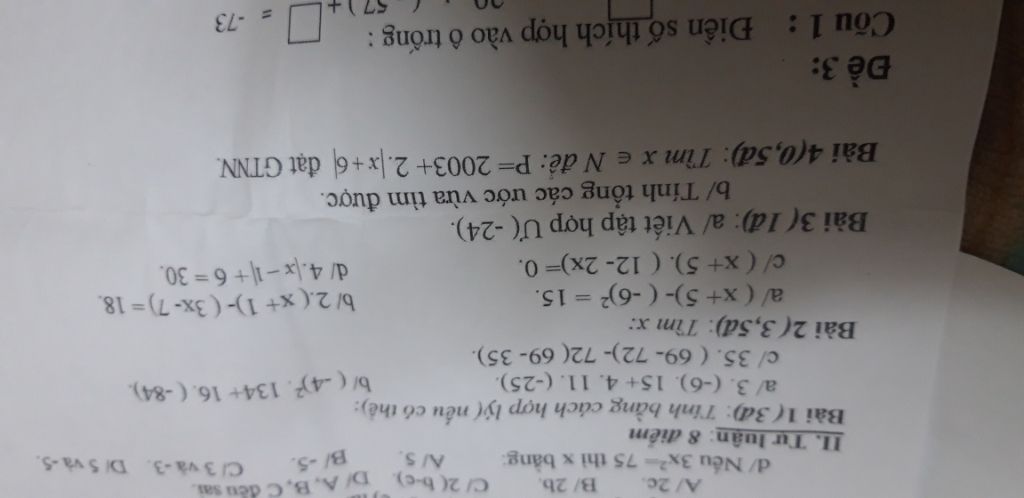 A/ 2c. B/ 2b. C/ 2( b-c). D/ A, B, C đều sai.
d/ Nếu 3x²= 75 thì x bằng: A/ 5. B/ -5. C/ 3 và -3. D/ 5 và -5.
II. Tự luận: 8 điểm
Bài 1(3đ): Tính bằng cách hợp lý( nếu có thể):
a/ 3. (-6). 15+ 4. 11. (-25). b/ ( -4)². 134+ 16. ( -84).
c/ 35. ( 69- 72)- 72( 69- 35).
Bài 2( 3,5đ): Tìm x:
a/ ( x+ 5)- ( -6)² = 15. b/ 2.( x+ 1)-( 3x- 7)= 18.
c/ ( x+ 5). ( 12- 2x)= 0. d/ 4.|x − 1|+ 6 = 30.
Bài 3( 1đ): a/ Viết tập hợp Ư( -24).
b/ Tính tổng các ước vừa tìm được.
Bài 4(0,5đ): Tìm x ∈ N để: P= 2003+ 2.|x+6| đạt GTNN.
Đề 3:
Câu 1 : Điền số thích hợp vào ô trống :
57)+ □ = -73